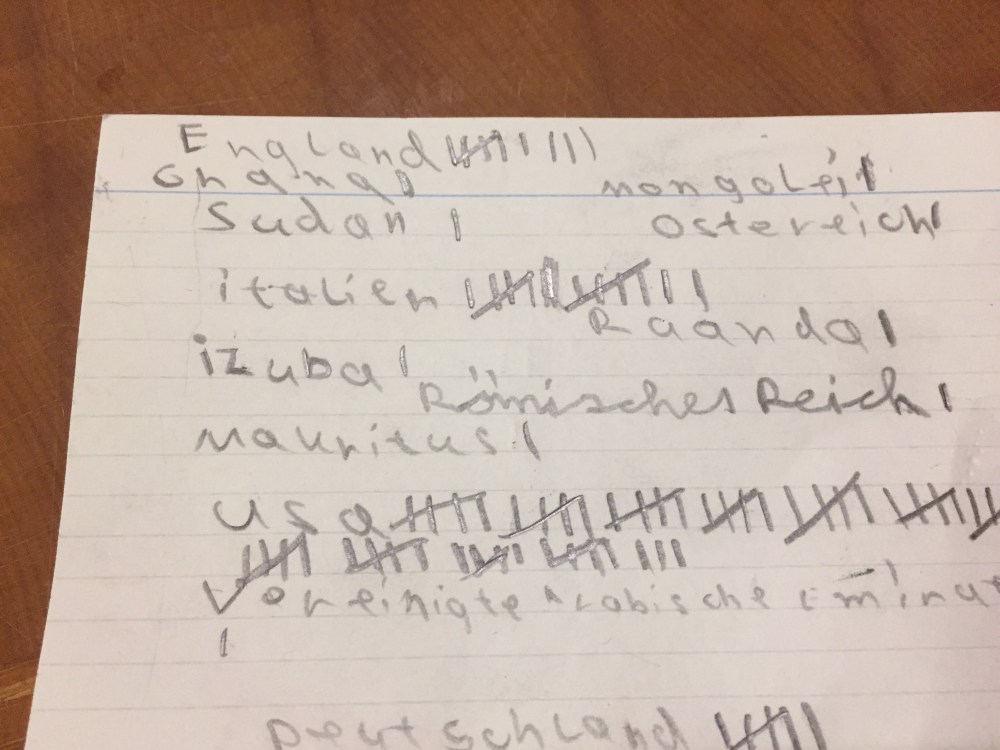 England
Ghana mongolei
Sudan Osterreich
italien
Raanda
izuba
Römisches Reich
Mauritus
usa
Vereinigte Arabische
Deutschland